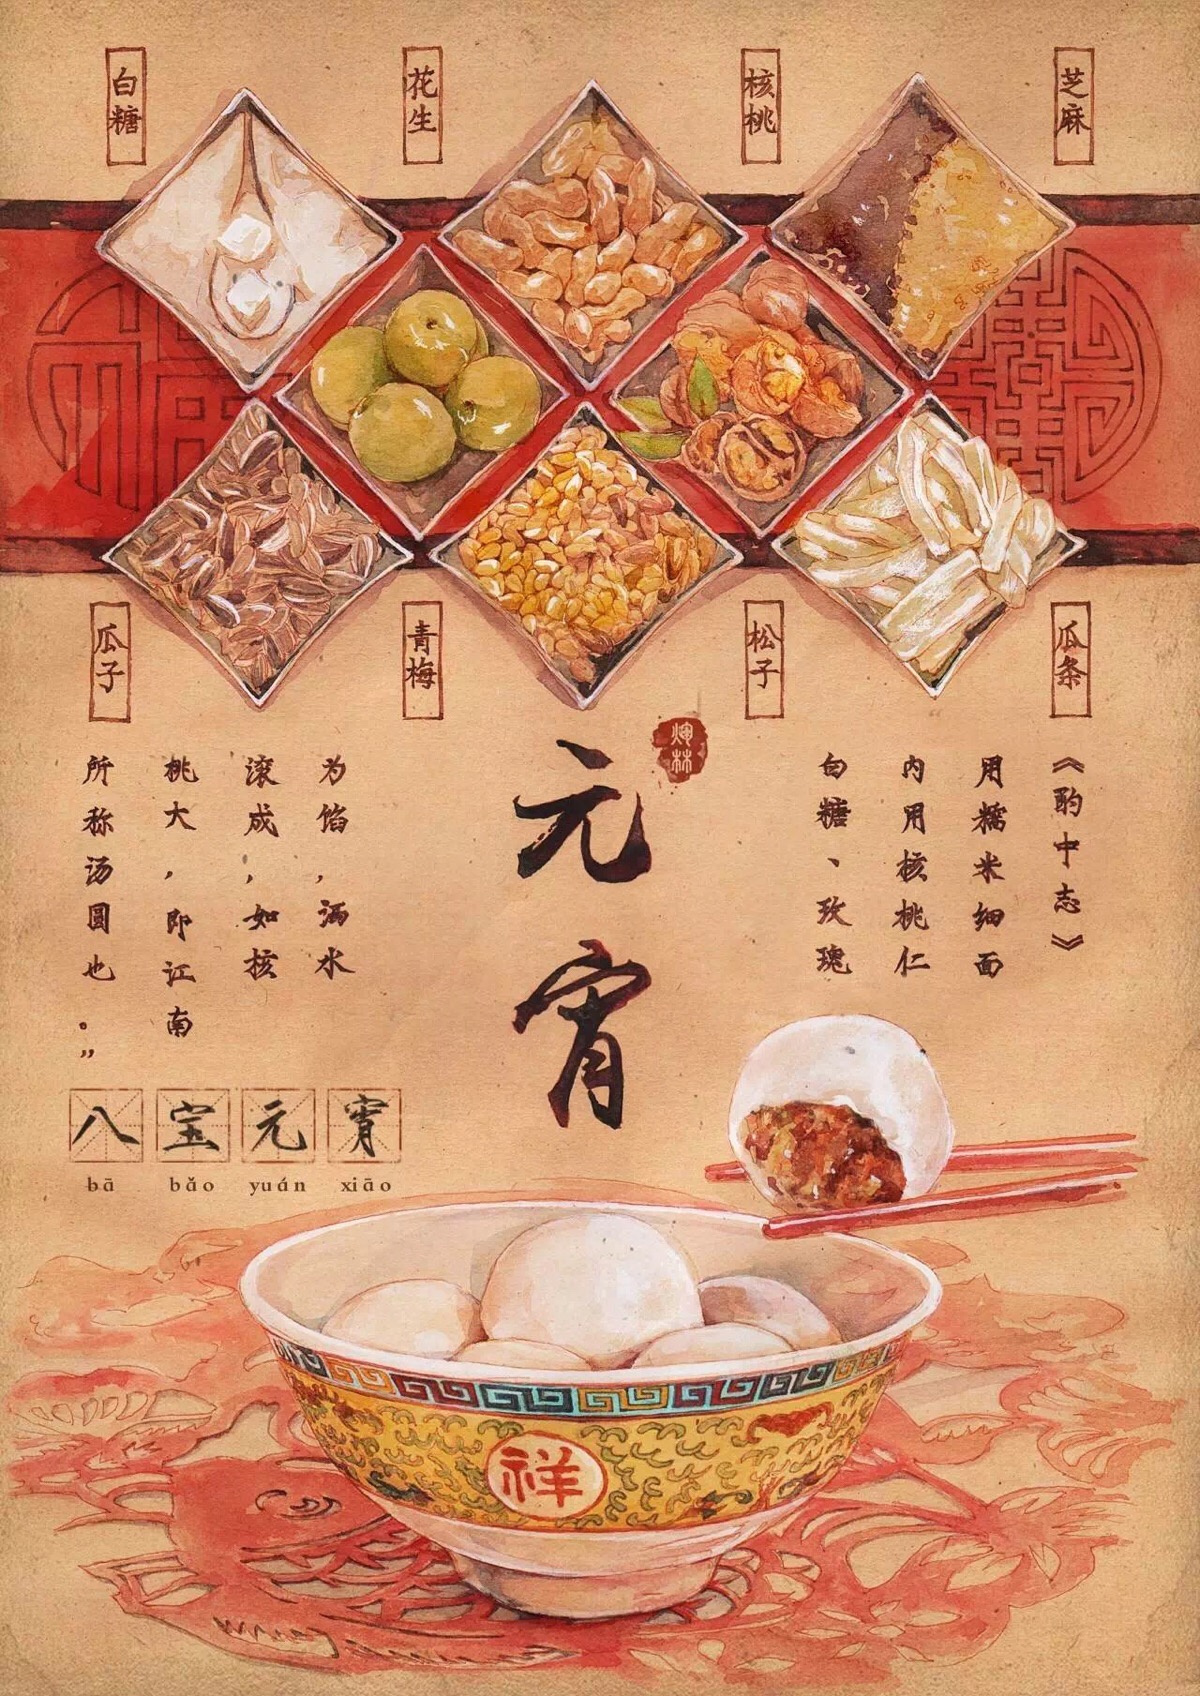 白糖
花生
核桃
芝麻
瓜子
青梅
松子
瓜条
元宵
《酌中志》
用糯米细面
内用核桃仁
白糖、玫瑰
为馅,洒水
滚成,如核
桃大,即江南
所称汤圆也。”
八宝元宵
bā bǎo yuán xiāo
祥